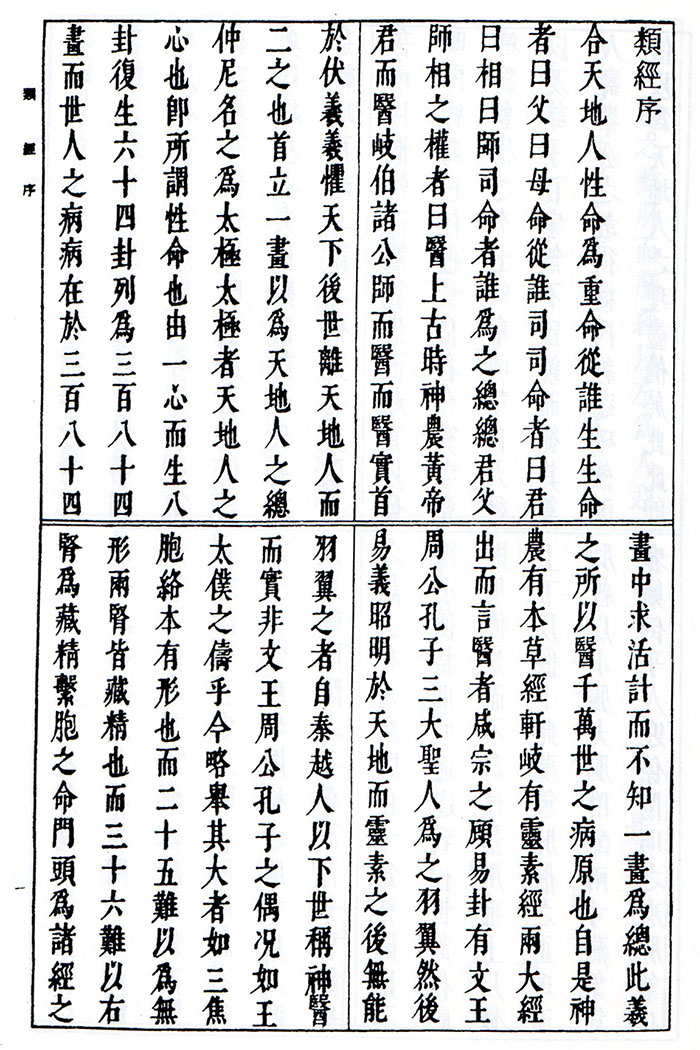 類經序
合天地人性命為重命從誰生生命
者曰父曰母命從誰司司命者曰君
曰相曰師司命者誰為之總總君父
師相之權者曰醫上古時神農黃帝
君而醫岐伯諸公師而醫而醫實首
於伏義義懼天下後世離天地人而
二之也首立一畫以為天地人之總
仲尼名之為太極太極者天地人之
心也卽所謂性命也由一心而生八
封復生六十四封列為三百八十四
畫而世人之病病在於三百八十四
畫中求活計而不知一畫為總此義
之所以醫千萬世之病原也自是神
農有本草經軒岐有靈素經兩大經
出而言醫者咸宗之顧易卦有文王
周公孔子三大聖人為之羽翼然後
易義昭明於天地而靈素之後無能
羽翼之者自秦越人以下世稱神醫
而實非文王周公孔子之偶况如王
太僕之儔乎今略舉其大者如三焦
胞絡本有形也而二十五難以為無
形兩腎皆藏精也而三十六難以右
腎為藏精繫胞之命門頭為諸經之
類經序